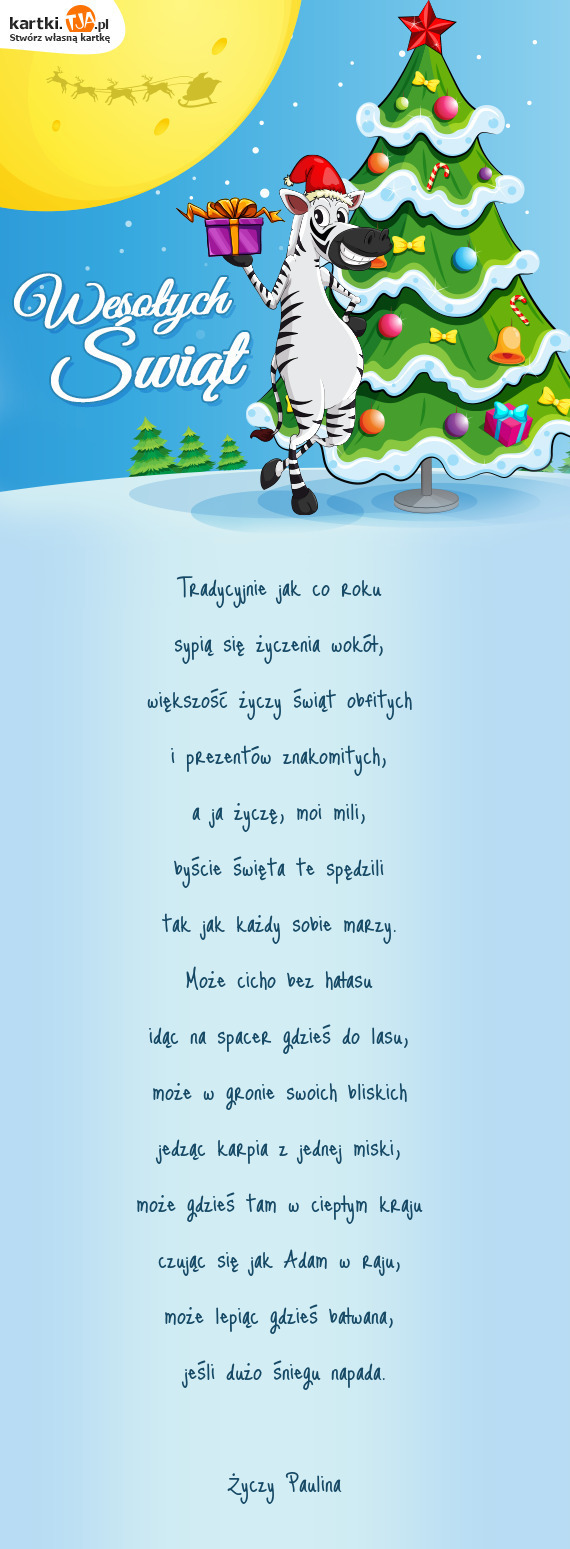 kartki.TJA.pl
Stwórz własną kartkę
Wesołych
Świąt
Tradycyjnie jak co roku
sypią się życzenia wokół,
większość życzy świąt obfitych
i prezentów znakomitych,
a ja życzę, moi mili,
byście święta te spędzili
tak jak każdy sobie marzy.
Może cicho bez hałasu
idąc na spacer gdzieś do lasu,
może w gronie swoich bliskich
jedząc karpia z jednej miski,
może gdzieś tam w ciepłym kraju
czując się jak Adam w raju,
może lepiąc gdzieś bałwana,
jeśli dużo śniegu napada.
Życzy Paulina